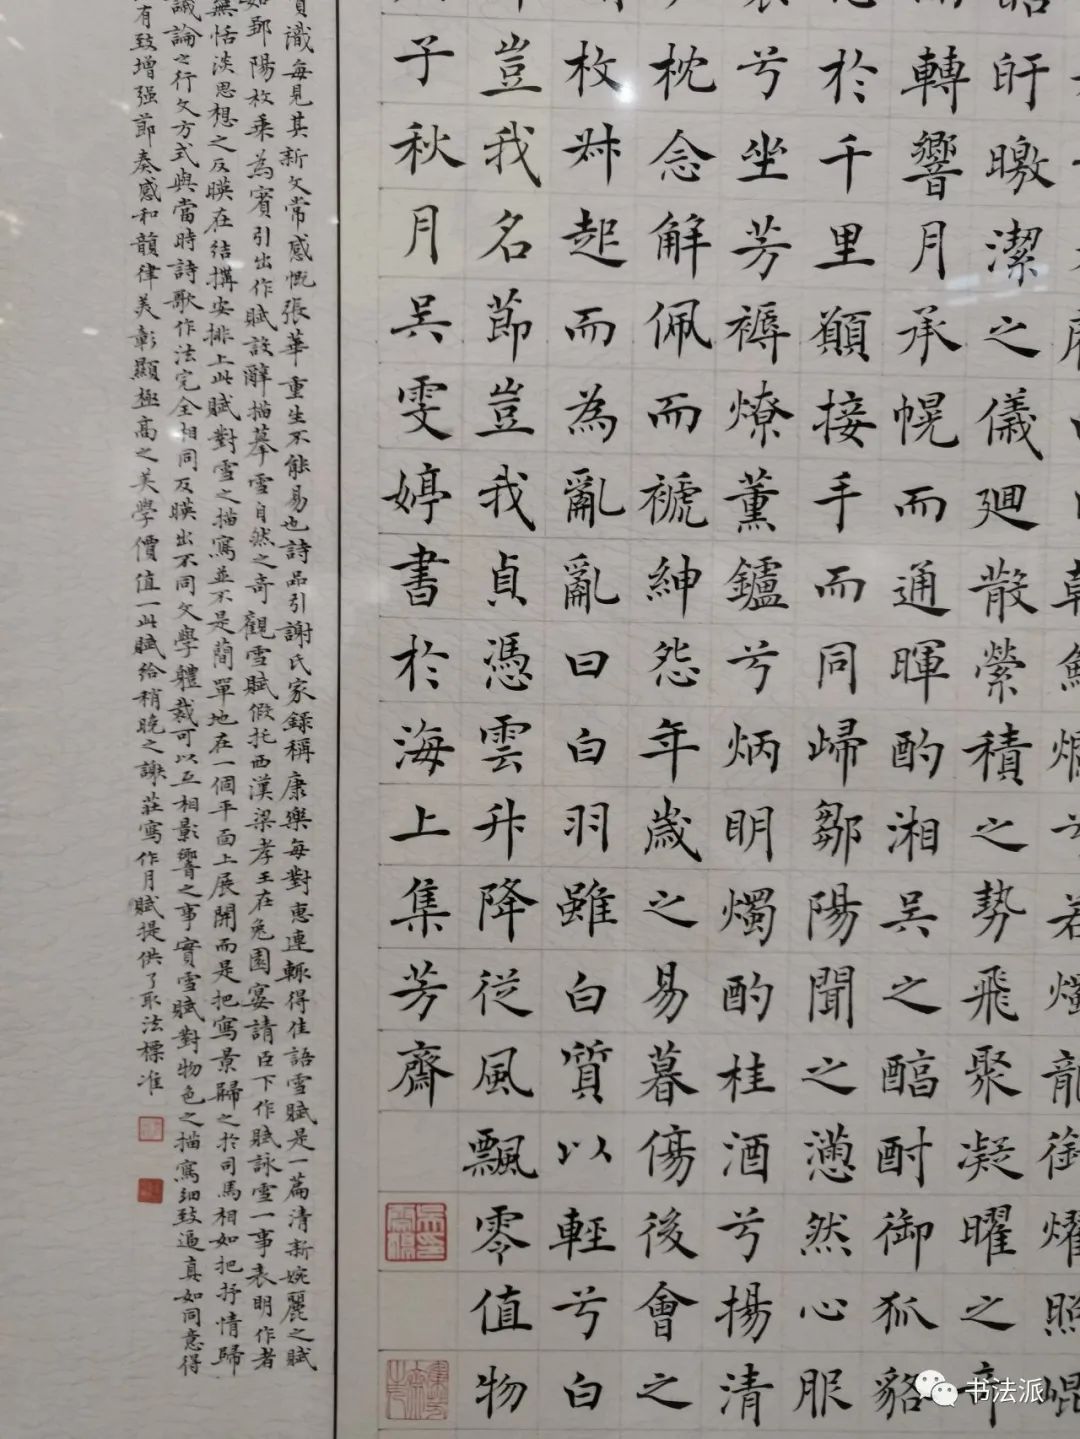 朝鮮爛兮若燭龍銜燿照崐
旰曒潔之儀廻散縈積之勢飛聚凝曜之奇
轉響月承幌而通暉酌湘吳之醕酎御狐貉
於千里願接手而同歸鄒陽聞之懣然心服
兮坐芳褥燎薰鑪兮炳明燭酌桂酒兮揚清
枕念解佩而褫紳怨年歲之易暮傷後會之
枚叔起而為亂亂曰白羽雖白質以輕兮白
豈我名節豈我貞憑雲升降從風飄零值物
子秋月吳雯婷書於海上集芳齋
識每見其新文常感慨張華重生不能易也詩品引謝氏家錄稱康樂每對惠連輒得佳語雪賦是一篇清新婉麗之賦
如鄒陽枚乘為賓引出作賦設辭描摹雪自然之奇觀雪賦假托西漢梁孝王在兔園宴請臣下作賦詠雪一事表明作者
無恬淡思想之反映在結構安排上此賦對雪之描寫並不是簡單地在一個平面上展開而是把寫景歸之於司馬相如把抒情歸
議論之行文方式與當時詩歌作法完全相同反映出不同文學體裁可以互相影響之事實雪賦對物色之描寫細致逼真如同意得
有致增强節奏感和韻律美彰顯極高之美學價值一此賦給稍晚之謝莊寫作月賦提供了取法標准
书法派